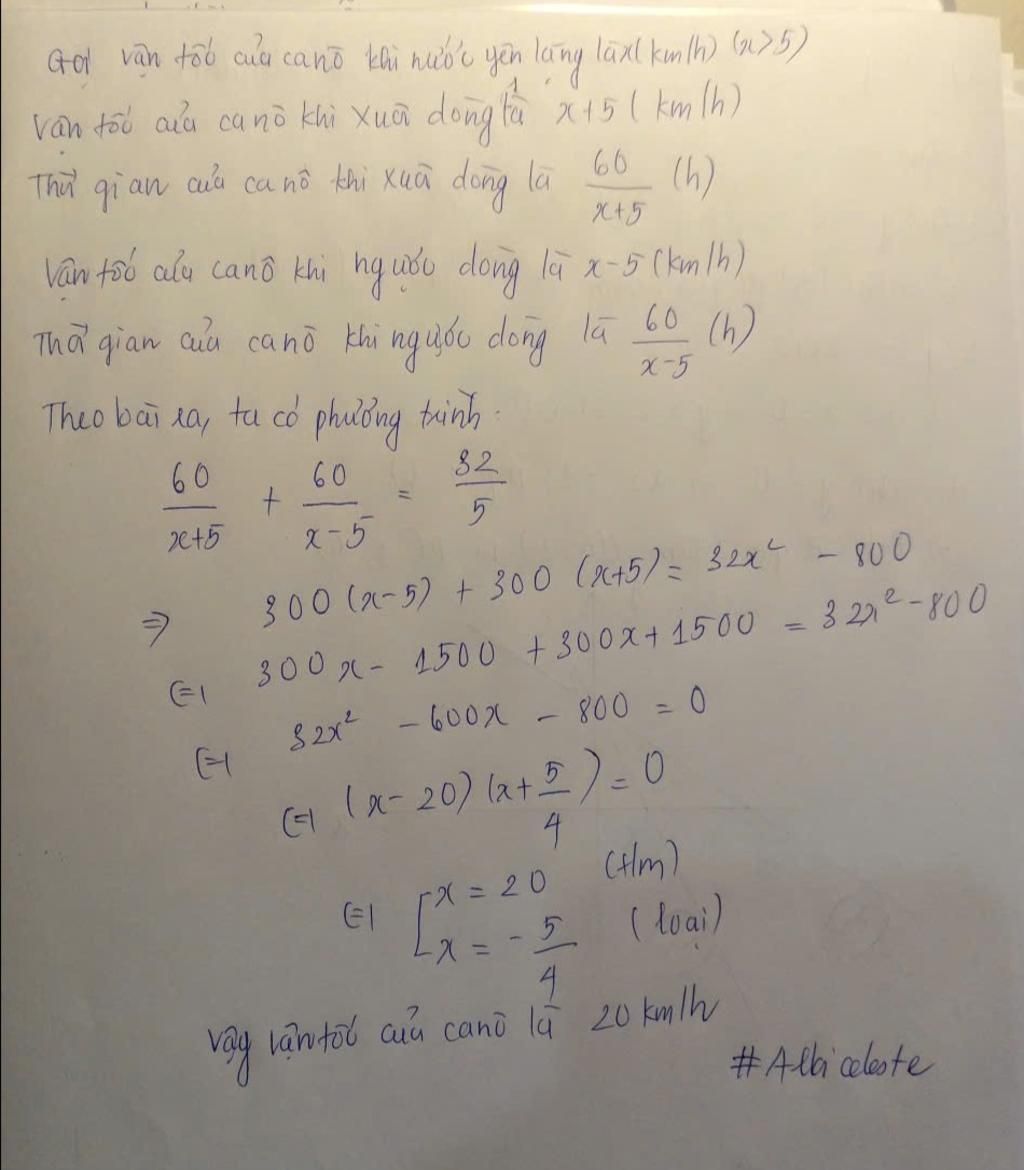 Gọi vận tốc của canô khi nước yên lặng là x( km/h) (x>5)
Vận tốc của canô khi xuôi dòng là x+5 ( km/h)
Thời gian của canô khi xuôi dòng là 60/(x+5) (h)
Vận tốc của canô khi ngược dòng là x-5 (km/h)
Thời gian của canô khi ngược dòng là 60/(x-5) (h)
Theo bài ra, ta có phương trình:
60/(x+5) + 60/(x-5) = 32/5
⇒ 300 (x-5) + 300 (x+5) = 32x² - 800
⇔ 300x - 1500 + 300x + 1500 = 32x² - 800
⇔ 32x² - 600x - 800 = 0
⇔ (x-20) (x+5/4) = 0
⇔ [x = 20 (t/m)
[x = -5/4 (loại)
Vậy vận tốc của canô là 20 km/h
#Albiceleste